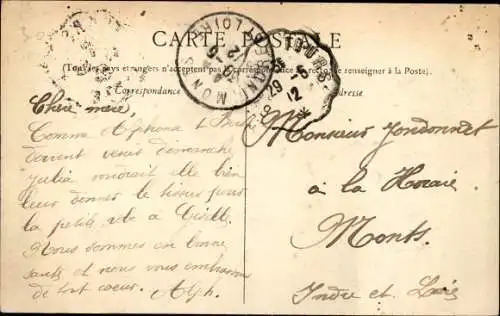 CARTE POSTALE
(Tous les pays étrangers n'acceptent pas la correspondance au recto, se renseigner à la Poste).
Correspondance
Adresse
Chère mère,
Comme Alphonse
doivent venir dimanche
Julia voudrait elle bien
leur donner le tissus pour
la petite robe à Gisèle.
Nous sommes en bonne
santé et nous vous embrassons
de tout cœur. Alph.
Monsieur
à la
Monts.
Indre et Loire
MONTS
29-5
12